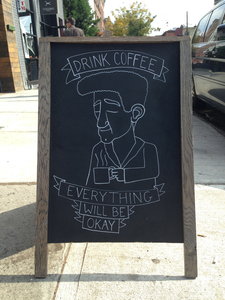 DRINK COFFEE
EVERYTHING
WILL BE
OKAY